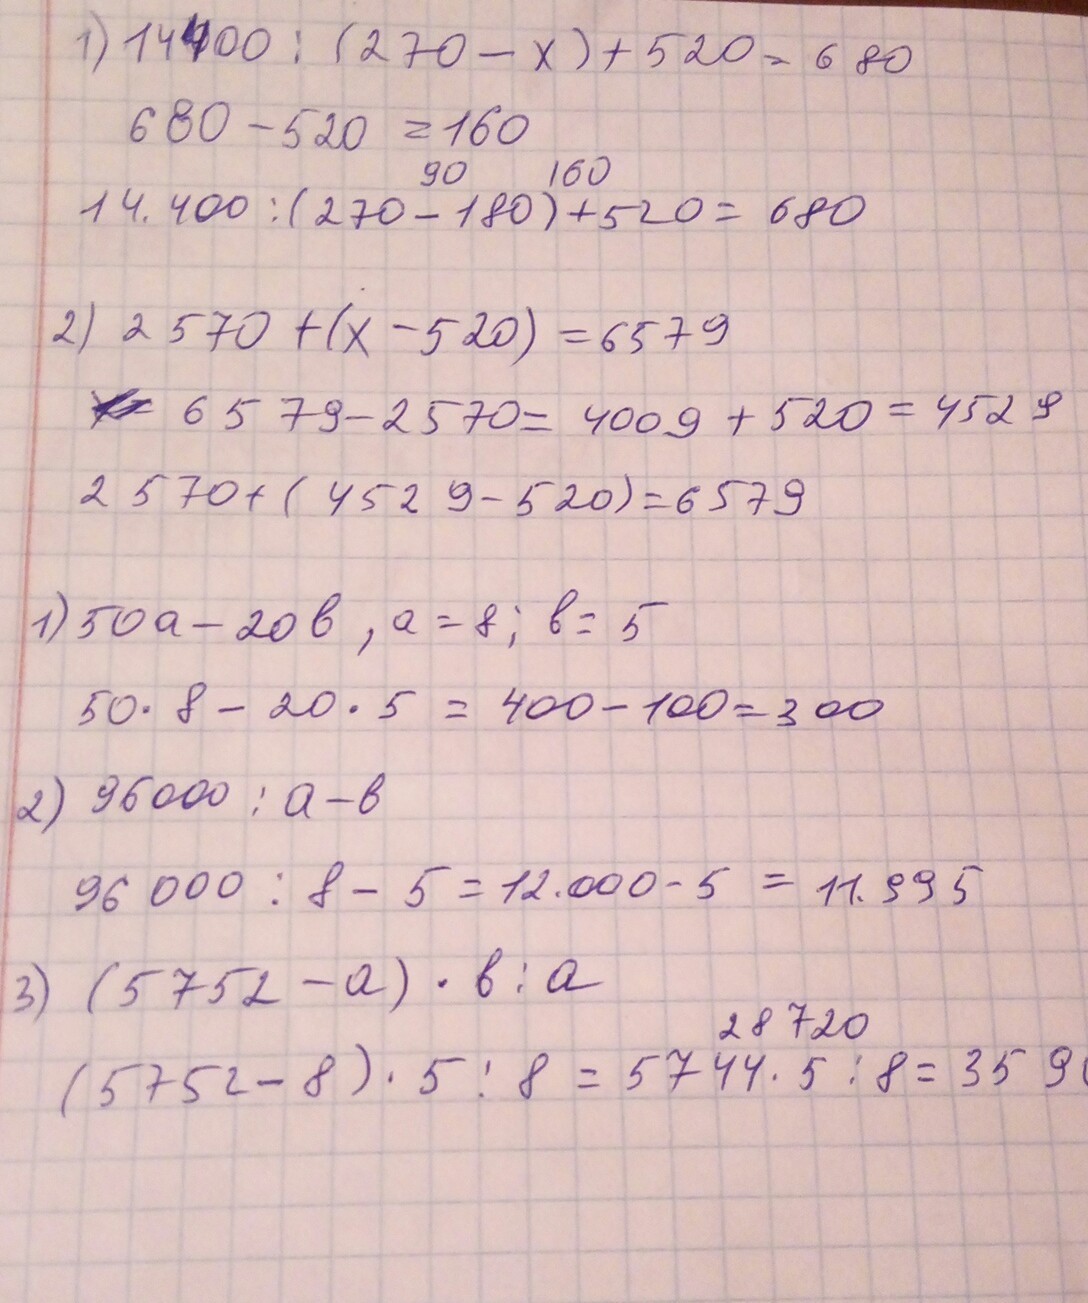 1) 14400 : (270 - x) + 520 = 680
680 - 520 = 160
90 160
14.400 : (270 - 180) + 520 = 680
2) 2570 + (x - 520) = 6579
6579 - 2570 = 4009 + 520 = 4529
2570 + (4529 - 520) = 6579
1) 50a - 20в, a = 8; в = 5
50 · 8 - 20 · 5 = 400 - 100 = 300
2) 96000 : a - в
96 000 : 8 - 5 = 12.000 - 5 = 11.995
3) (5752 - a) · в : a
28720
(5752 - 8) · 5 : 8 = 5744 · 5 : 8 = 359